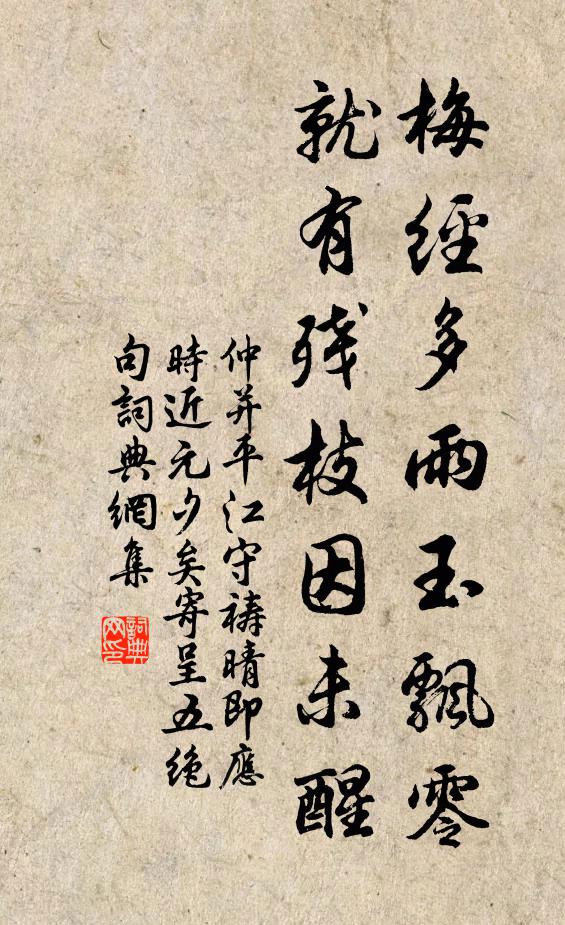 梅經多雨玉飄零
就有残枝因未醒
仲并平江守祷晴即應
時近元夕矣寄呈五绝
句詞典網集
詞典網印